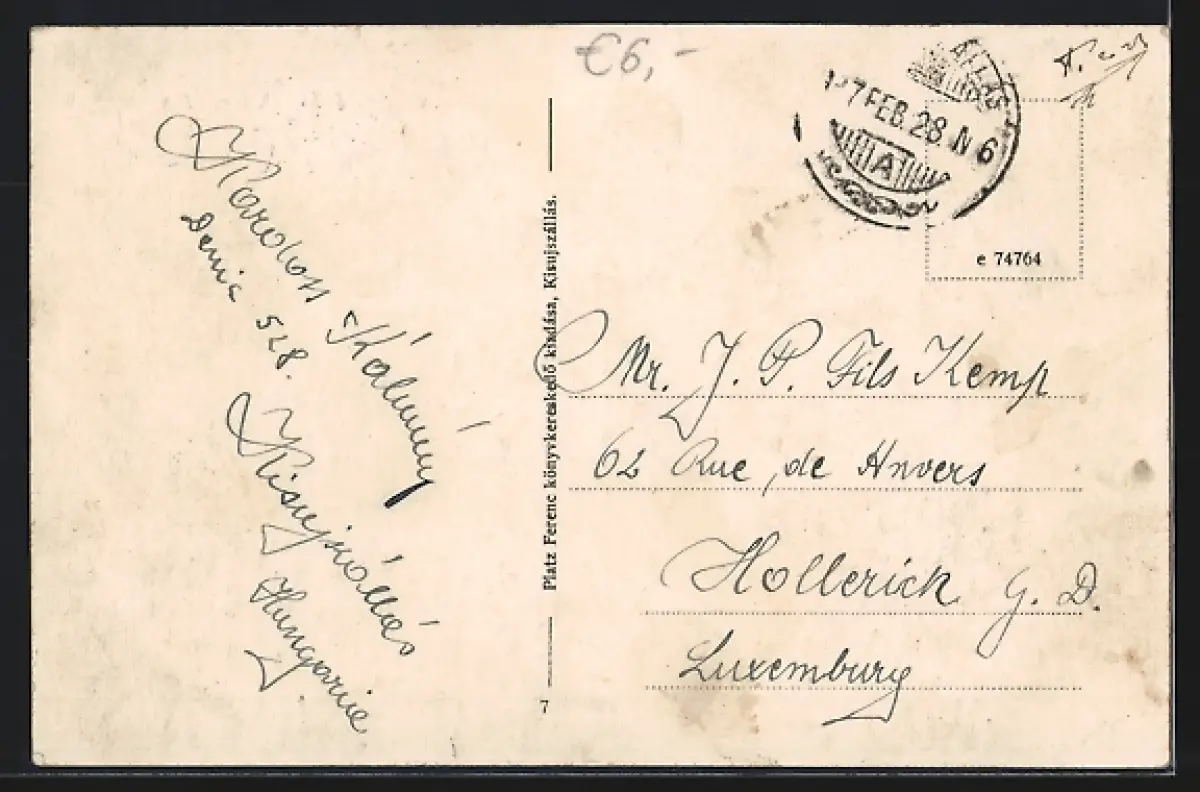 €6,-
ÁLLÁS
927 FEB. 28. N 6
A
e 74764
Kálmán
528.
Kisujszállás
Hungarie
Platz Ferenc könyvkereskedő kiadása, Kisujszállás.
7
Mr. J. P. Fils Kemp
62 Rue de Anvers
Hollerich G. D.
Luxemburg